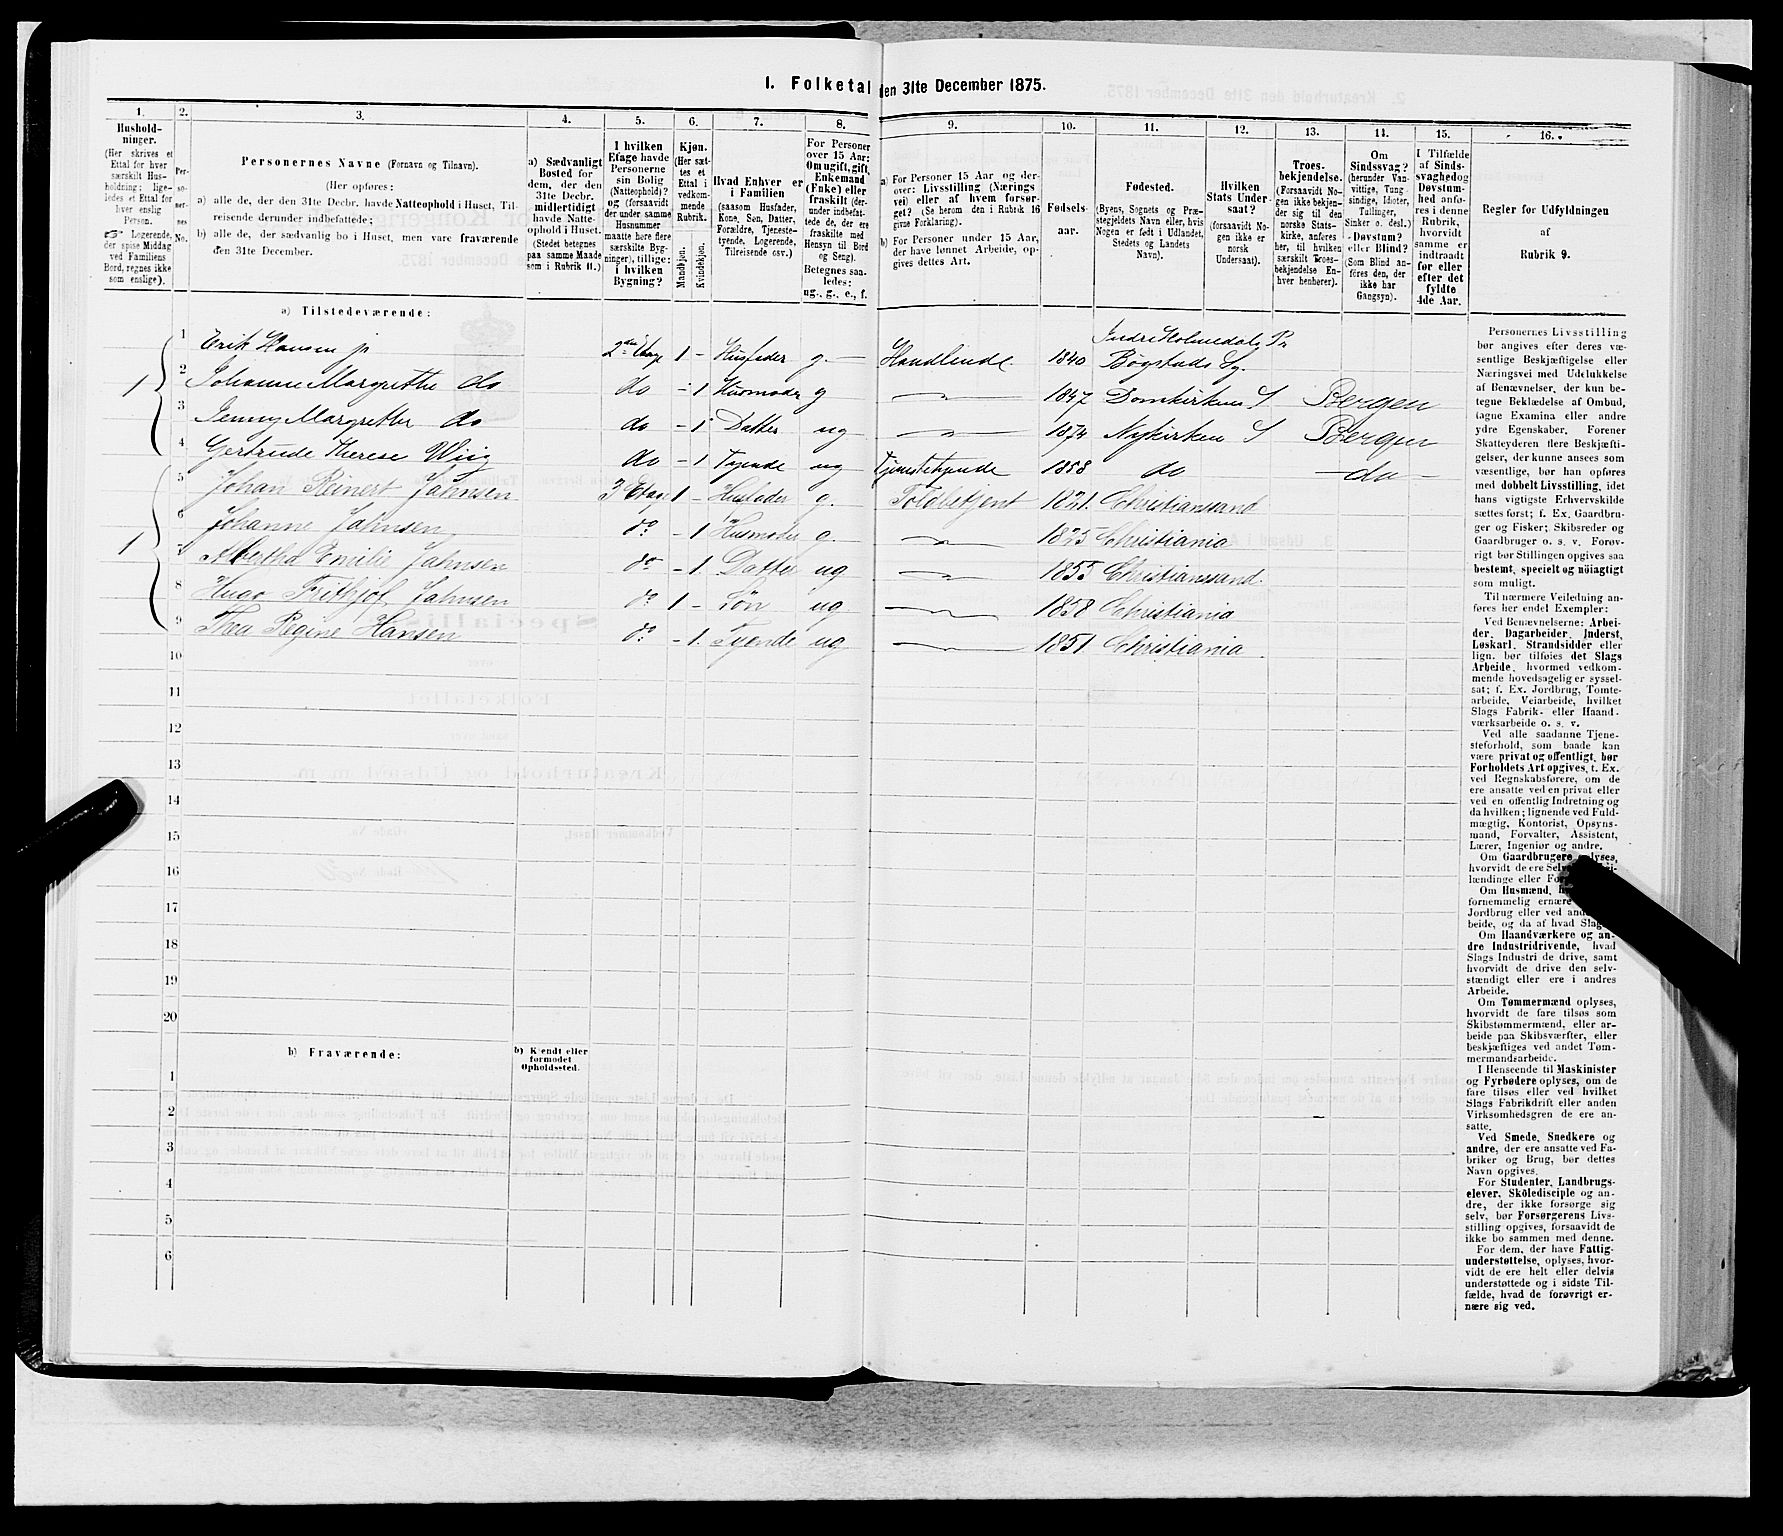 1. Folketal den 31te December 1875.
1.
2.
3.
4.
5.
6.
7.
8.
9.
10.
11.
12.
13.
14.
15.
16.
Hushold-
ninger.
(Her skrives et
Ettal for hver
særskilt Hus-
holdning; lige-
ledes et Ettal for
hver enslig
Person.
☞ Logerende,
der spise Middag
ved Familiens
Bord, regnes ikke
som enslige).
Per-
so-
ner-
nes
No.
Personernes Navne (Fornavn og Tilnavn).
(Her opføres:
a) alle de, der den 31te Decbr. havde Natteophold i Huset, Til-
reisende derunder indbefattede;
b) alle de, der sædvanlig bo i Huset, men vare fraværende
den 31te December.
a) Sædvanligt
Bosted for
dem, der den
31te Decbr.
midlertidigt
havde Natte-
ophold i Huset.
(Stedet betegnes
paa samme Maade
som i Rubrik 11.)
I hvilken
Etage havde
Personerne
sin Bolig
(Natteophold)?
og (forsaavidt
der under samme
Husnummer
maatte høre flere
særskilte Byg-
ninger), tillige:
i hvilken
Bygning?
Kjøn.
(Her sæt-
tes et
Ettal i
vedkom-
mende
Rubrik.
Mandkjøn.
Kvindekjøn.
Hvad Enhver er
i Familien
(saasom Husfader,
Kone, Søn, Datter,
Forældre, Tjeneste-
tyende, Logerende,
Tilreisende osv.)
For Personer
over 15 Aar:
Om ugift, gift,
Enkemand
(Enke) eller
fraskilt (der-
under indbefat-
tede de, der ere
fraskilte med
Hensyn til Bord
og Seng).
Betegnes saa-
ledes:
ug., g., e., f.
a) For Personer 15 Aar og der-
over: Livsstilling (Nærings-
vei) eller af hvem forsør-
get? (Se herom den i Rubrik 16
givne Forklaring).
b) For Personer under 15 Aar,
der have lønnet Arbeide, op-
gives dettes Art.
Fødsels-
aar.
Fødested.
(Byens, Sognets og Præ-
stegjeldets Navn eller, hvis
Nogen er født i Udlandet,
Stedets og Landets
Navn).
Hvilken
Stats Under-
saat?
(forsaavidt No-
gen ikke er
norsk
Undersaat).
Troes-
bekjendelse.
(Forsaavidt No-
gen ikke bekjen-
der sig til den
norske Stats-
kirke, anføres
her, til hvilken
særskilt Troes-
bekjendelse En-
hver henhører).
Om
Sindssvag?
(herunder Van-
vittige, Tung-
sindige, Idioter,
Tullinger,
Sinker o. desl.)
Døvstum?
eller Blind?
(Som Blind an-
føres den, der
ikke har
Gangsyn).
I Tilfælde
af Sinds-
svaghed og
Døvstum-
hed anfø-
res i denne
Rubrik,
hvorvidt
samme er
indtraadt
før eller
efter det
fyldte
4de Aar.
Regler for Udfyldningen
af
Rubrik 9.
a) Tilstedeværende:
1 Erik Hansen jr 2den Etage 1 – Husfader g. Handlende. 1840 Indre Holmedals Pr
Bøgstads Sg.
1
2 Johanne Margrethe do do – 1 Husmoder g 1847 Domkirkens S Bergen
3 Jenny Margrethe do do – 1 Datter ug 1874 Nykirken S Bergen
4 Gertrude Therese Wiig do – 1 Tyende ug Tjenestetyende 1858 do – do –
5 Johan Reinert Jahnsen 3 Etage 1 – Husfader g. Toldbetjent 1821. Christianssand
6 Johanne Jahnsen do – 1 Husmoder g. 1825 Christiania
1
7 Albertha Emilie Jahnsen do – 1. Datter ug 1855 Christianssand.
8 Hugo Frithjof Jahnsen do 1 – Søn ug 1858 Christiania
9 Thea Regine Hansen do – 1. Tyende ug 1851. Christiania
10
11
12
13
14
15
16
17
18
19
20
b) Fraværende:
b) Kjendt eller
formodet
Opholdssted.
1
2
3
4
5
6
Personernes Livsstilling
bør angives efter deres væ-
sentlige Beskjæftigelse eller
Næringsvei med Udelukkelse
af Benævnelser, der kun be-
tegne Beklædelse af Ombud,
tagne Examina eller andre
ydre Egenskaber. Forener
Skatteyderen flere Beskjæfti-
gelser, der kunne ansees som
væsentlige, bør han opføres
med dobbelt Livsstilling, idet
hans vigtigste Erhvervskilde
sættes først; f. Ex. Gaardbru-
ger og Fisker; Skibsreder og
Gaardbruger o. s. v. Forøv-
rigt bør Stillingen opgives saa
bestemt, specielt og nöiagtigt
som muligt.
Til nærmere Veiledning an-
føres her endel Exempler:
Ved Benævnelserne: Arbei-
der, Dagarbeider, Inderst,
Løskarl, Strandsidder eller
lign. bør tilføies det Slags
Arbeide, hvormed vedkom-
mende hovedsagelig er syssel-
sat; f. Ex. Jordbrug, Tomte-
arbeide, Veiarbeide, hvilket
Slags Fabrik- eller Haand-
værksarbeide o. s. v.
Ved alle saadanne Tjene-
steforhold, som baade kan
være privat og offentligt, bør
Forholdets Art opgives, t. Ex.
ved Regnskabsførere, om de
ere ansatte ved en privat eller
ved en offentlig Indretning og
da hvilken; lignende ved Fuld-
mægtig, Kontorist, Opsyns-
mand, Forvalter, Assistent,
Lærer, Ingeniør og andre.
Om Gaardbrugere oplyses,
hvorvidt de ere
lændinge eller
Om Husmænd,
fornemmelig ernære
Jordbrug eller ved
beide, og da af hvad
Om Haandværkere og an-
dre Industridrivende, hvad
Slags Industri de drive, samt
hvorvidt de drive den selv-
stændigt eller ere i andres
Arbeide.
Om Tømmermænd oplyses,
hvorvidt de fare tilsøs som
Skibstømmermænd, eller ar-
beide paa Skibsværfter, eller
beskjæftiges ved andet Tøm-
mermandsarbeide.
I Henseende til Maskinister
og Fyrbødere oplyses, om de
fare tilsøs eller ved hvilket
Slags Fabrikdrift eller anden
Virksomhedsgren de ere an-
satte.
Ved Smede, Snedkere og
andre, der ere ansatte ved Fa-
briker og Brug, bør dettes
Navn opgives.
For Studenter, Landbrugs-
elever, Skoledisciple og an-
dre, der ikke forsørge sig
selv, bør Forsørgerens Livs-
stilling opgives, forsaavidt de
ikke bo sammen med denne.
For dem, der have Fattig-
understøttelse, oplyses, hvor-
vidt de ere helt eller delvis
understøttede og i sidste Til-
fælde, hvad de forøvrigt er-
nære sig ved.